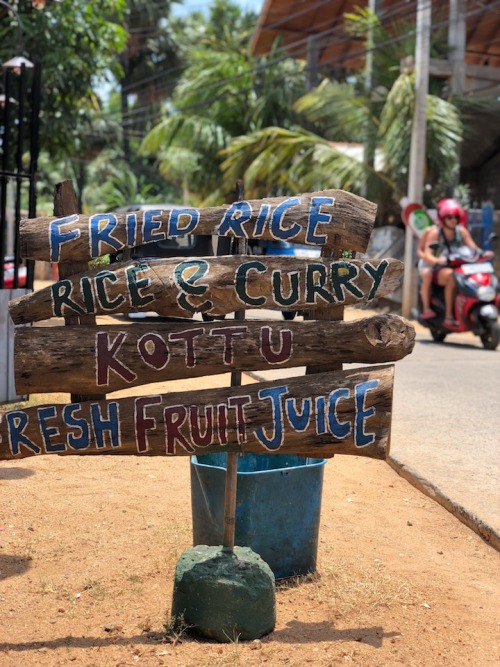 FRIED RICE
RICE & CURRY
KOTTU
FRESH FRUIT JUICE